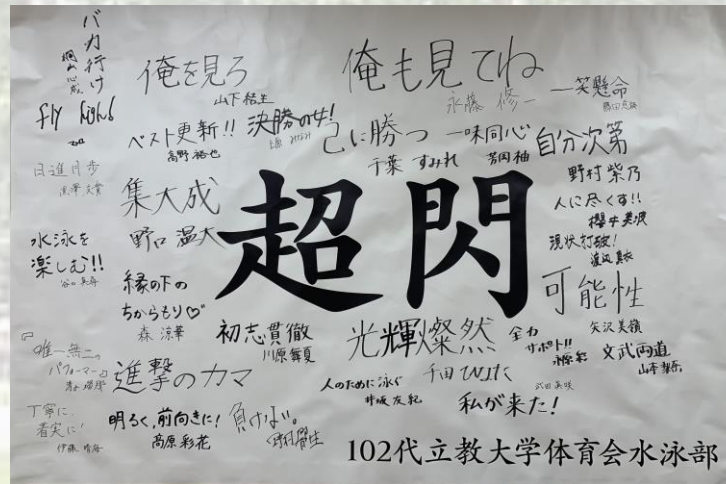 バカ行け
俺を見ろ
山下
俺も見てね
永藤 修一
一笑懸命
fly high!
ベスト更新!!
高野 裕也
決勝の女!
己に勝つ
千葉 すみれ
一味同心
芳岡 柚
自分次第
野村 紫乃
日進月歩
集大成
野口 温大
超閃
人に尽くす!!
櫻井 美波
現状打破!
渡辺
水泳を
楽しむ!!
縁の下の
ちからもり♡
森 涼華
初志貫徹
川原 舞夏
光輝燦然
千田
全力
サポート!!
可能性
矢沢 美嶺
文武両道
山本
『唯一無二の
パフォーマー』
進撃のカマ
人のために泳ぐ
井坂 友紀
私が来た!
武田 美咲
丁寧に、
着実に!
伊藤 晴海
明るく、前向きに!
高原 彩花
負けない。
102代立教大学体育会水泳部